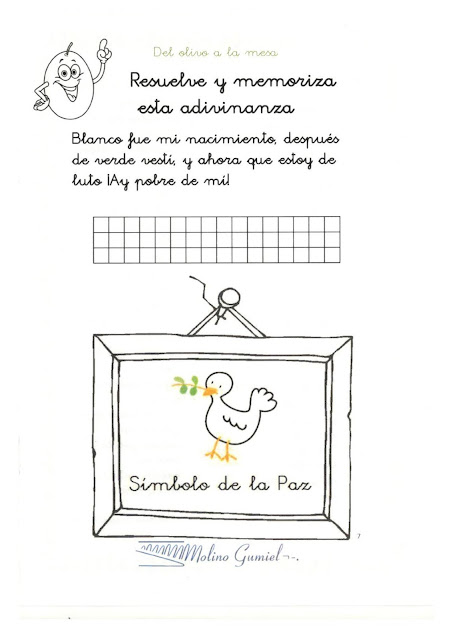 Del olivo a la mesa
Resuelve y memoriza
esta adivinanza
Blanco fue mi nacimiento, después
de verde vestí, y ahora que estoy de
luto ¡Ay pobre de mí!
Símbolo de la Paz
7
Molino Gumiel